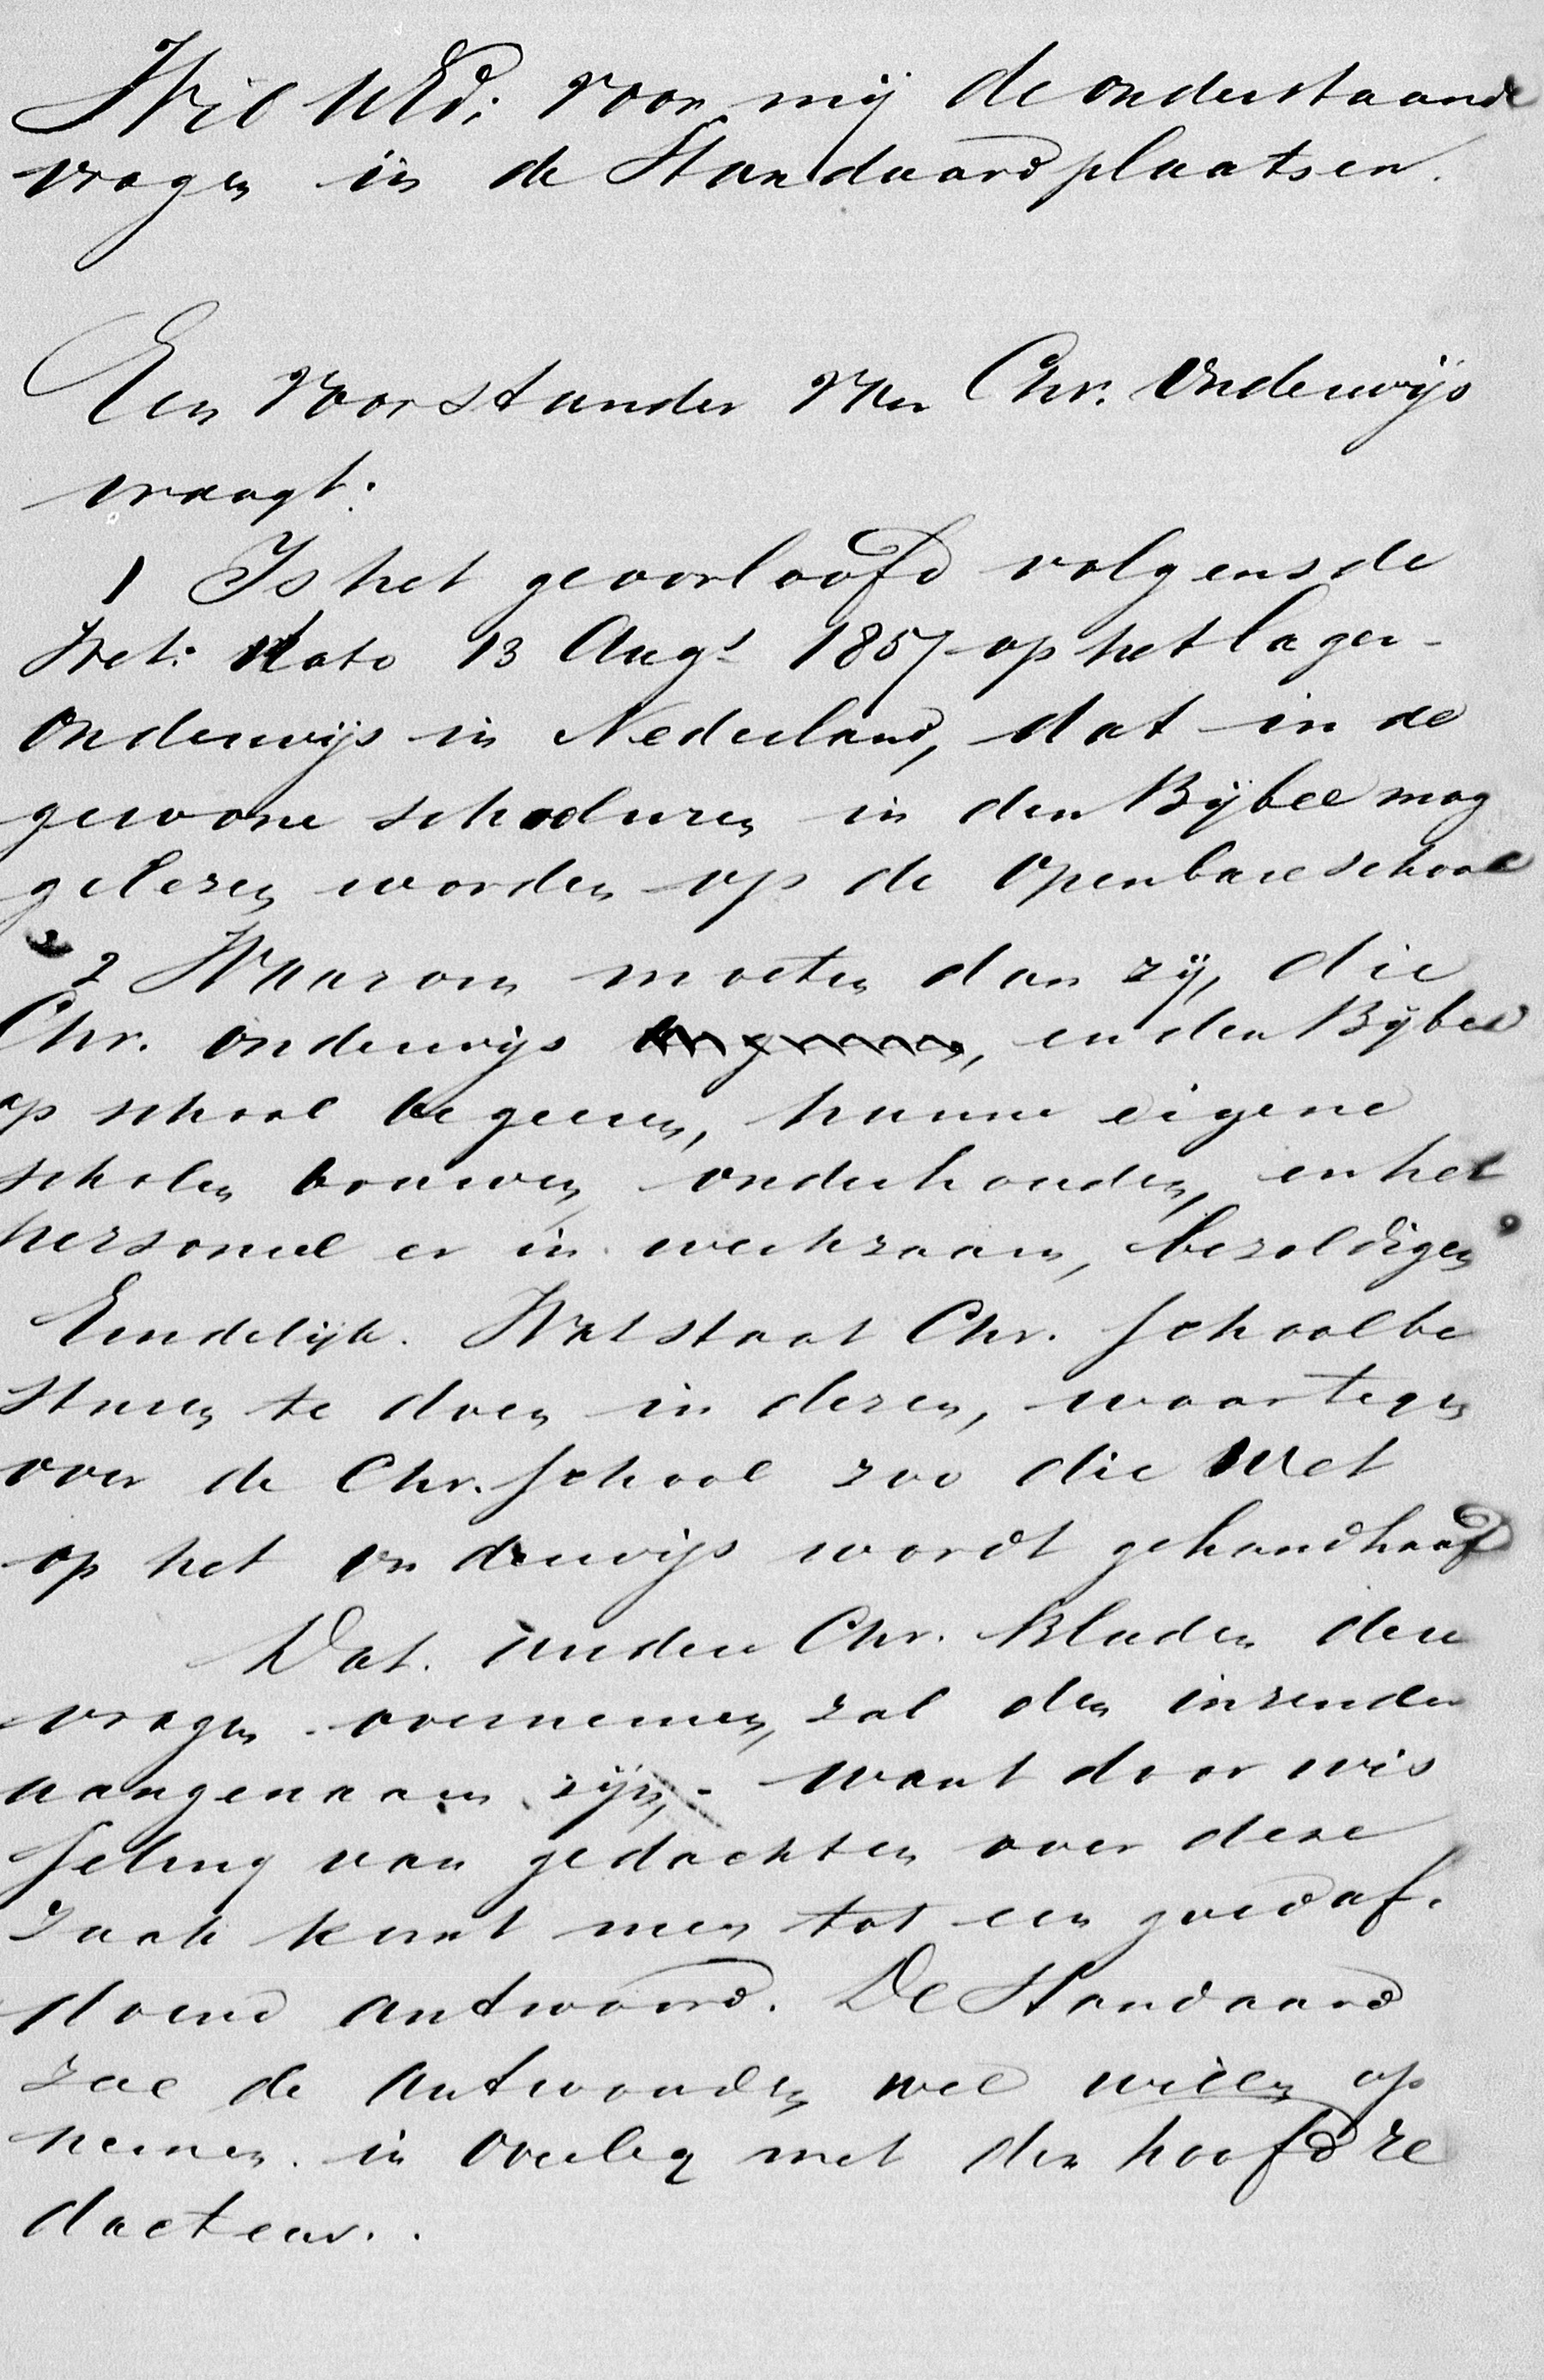 Wil UEd: voor mij de onderstaande
vragen in de Standaard plaatsen.
Een voorstander van Chr. Onderwijs
vraagt:
1 Is het geoorloofd volgens de
Wet: dato 13 Augs 1857 op het lager-
onderwijs in Nederland, dat in de
gewone schooluren in den Bijbel mag
gelezen worden op de openbare school
2 Waarom moeten dan zij, die
Chr. onderwijs, en den Bijbel
op school begeeren, hunne eigene
scholen bouwen, onderhouden, en het
personeel er in werkzaam, bezoldigen
Eindelijk. Wat staat Chr. schoolbe
sturen te doen in dezen, waar tegen
over de Chr. School zoo die Wet
op het onderwijs wordt gehandhaafd
Dat. andere Chr. Bladen deze
vragen overnemen, zal den inzender
aangenaam zijn, - want door wis
seling van gedachten over deze
zaak komt men tot een goed af-
doend antwoord. De Standaard
zal de antwoorden wel willen op
nemen. in overleg met den hoofdre
dacteur..